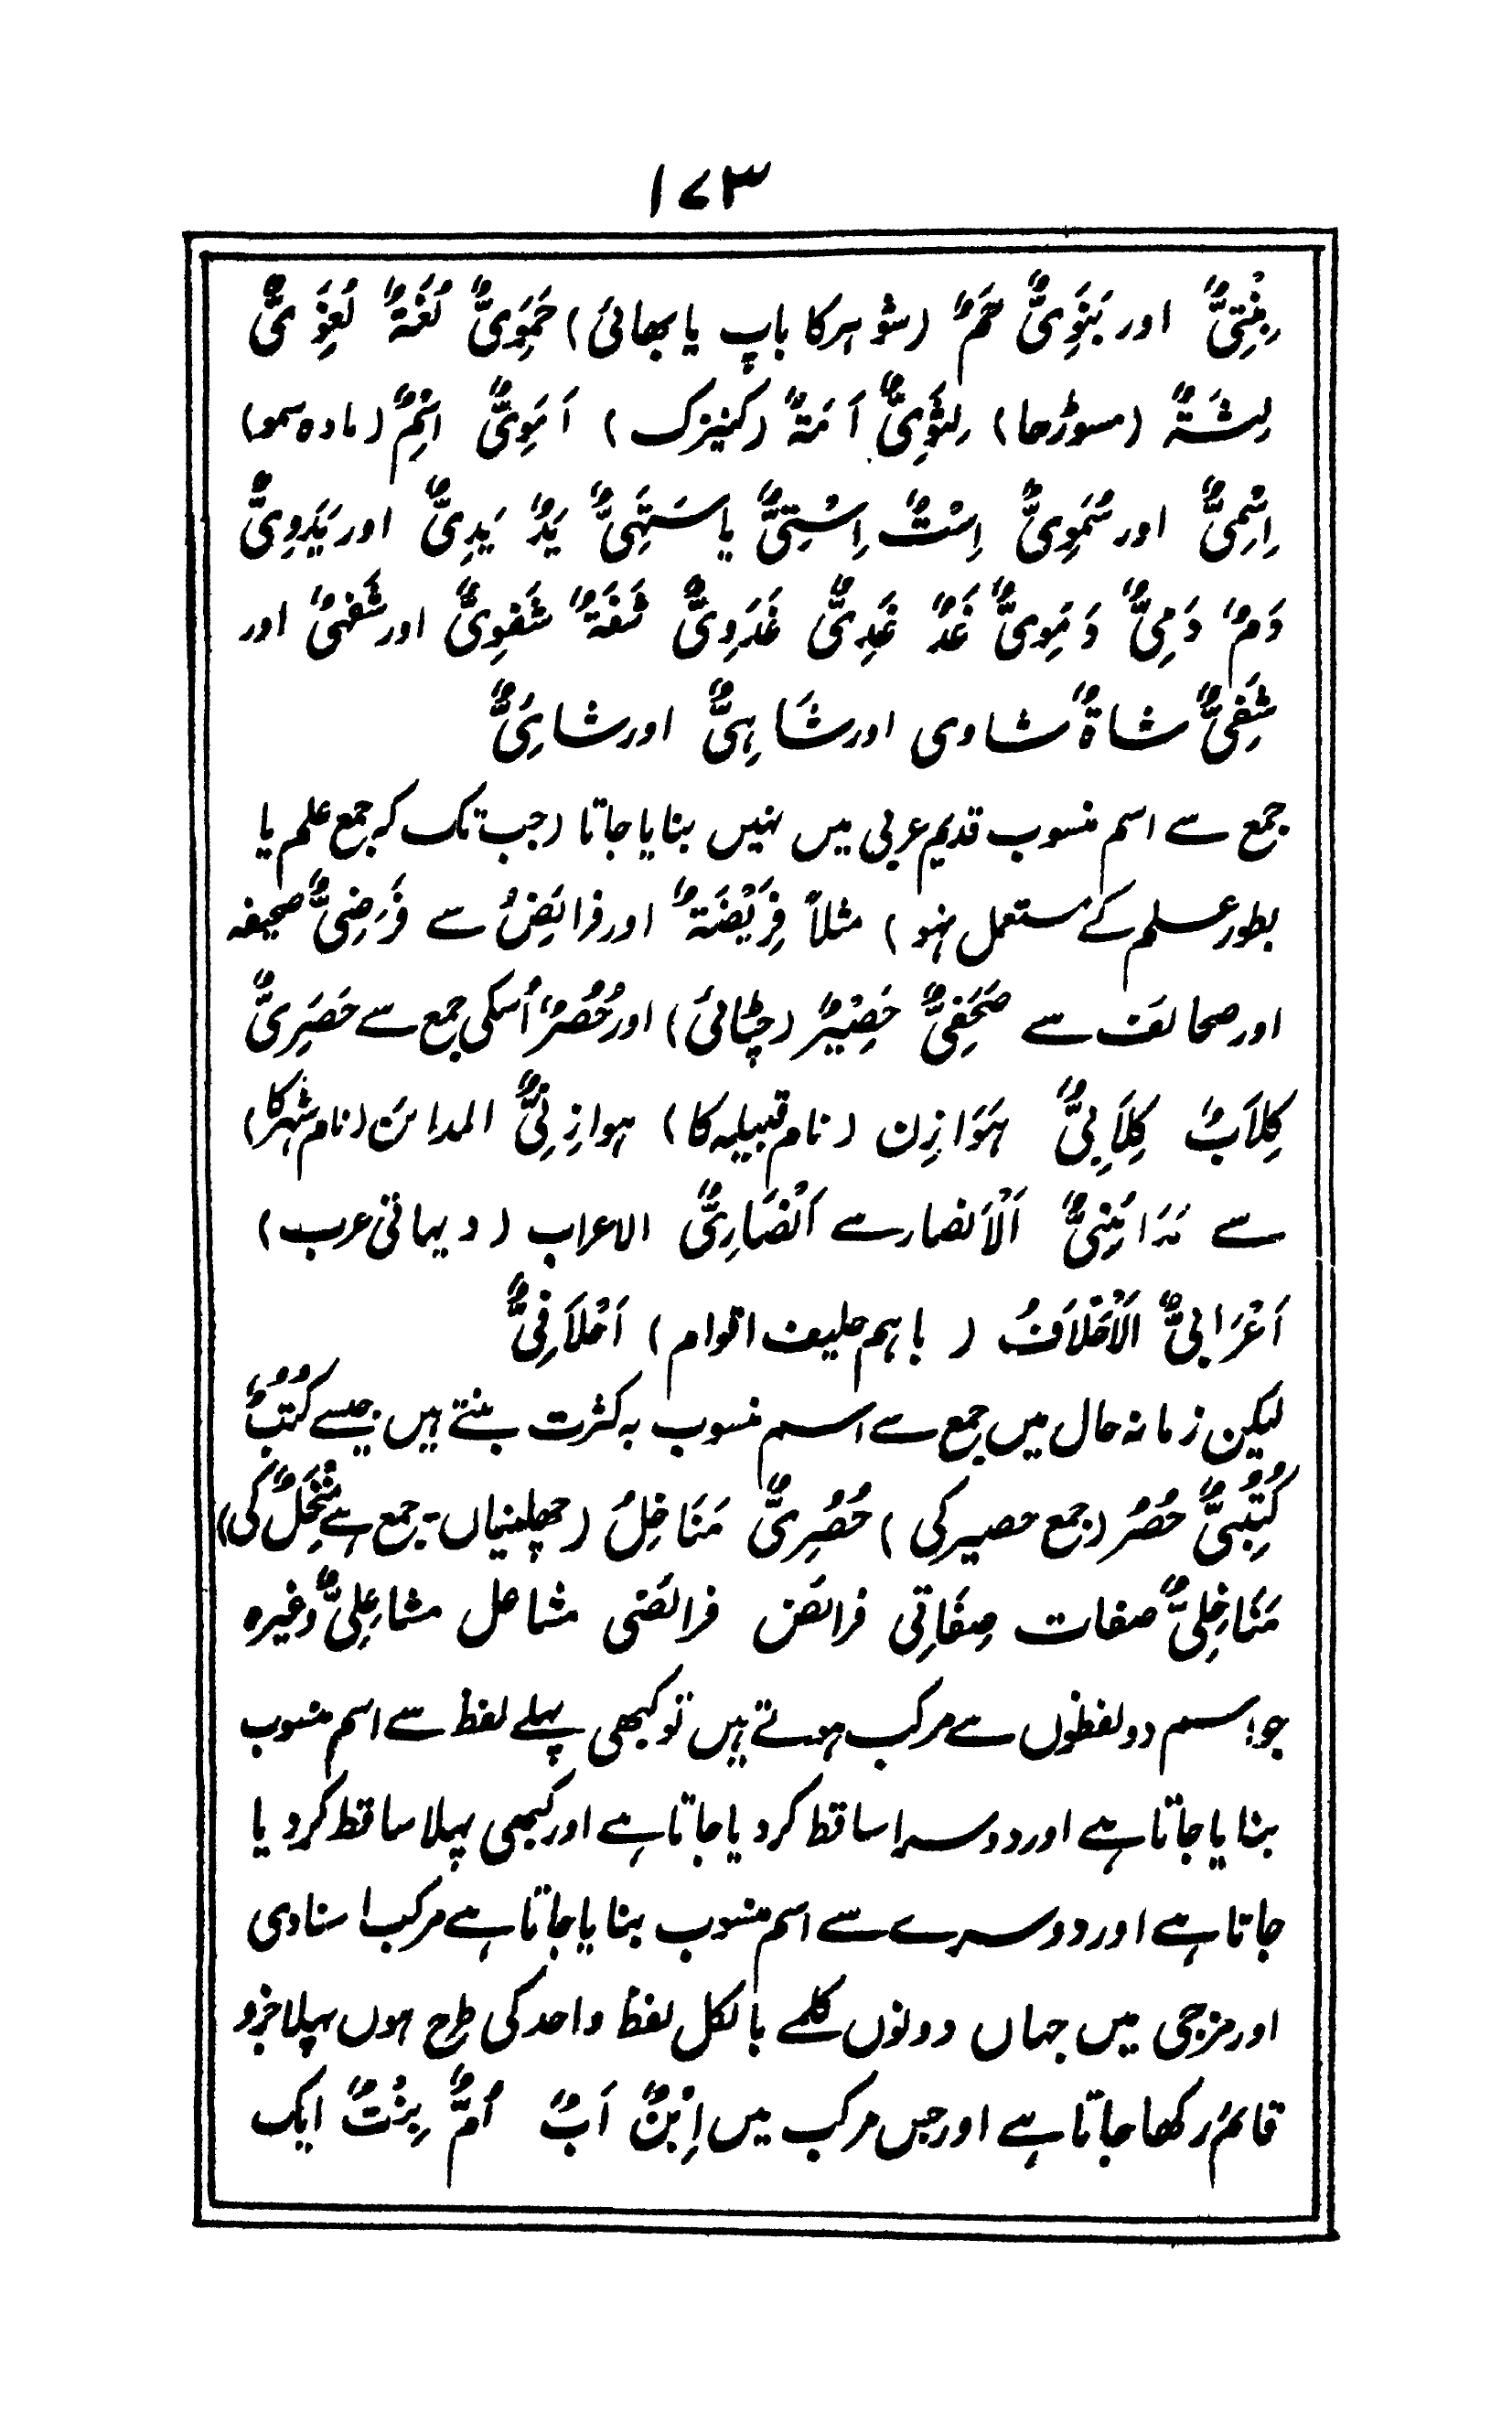 ۱۷۳
بِنْتِیٌّ اور بَنَوِیٌّ حَمٌ (شوہر کا باپ یا بھائی) حَمَوِیٌّ لُغَةٌ لُغَوِیٌّ
لِثَةٌ (مسوڑھا) لِثَوِیٌّ اَمَةٌ (کنیزک) اَمَوِیٌّ اِسْمٌ (مادہ سمو)
اِسْمِیٌّ اور سُمَوِیٌّ اِسْتٌ اِسْتِیٌّ یا سَتَہِیٌّ یَدٌ یَدِیٌّ اور یَدَوِیٌّ
دَمٌ دَمِیٌّ دَمَوِیٌّ غَدٌ غَدِیٌّ غَدَوِیٌّ شَفَةٌ شَفَوِیٌّ اور شَفَہِیٌ اور
شَفِیٌّ شاةٌ شاوی اور شَاہِیٌّ اور شایِیٌّ
جمع سے اسم منسوب قدیم عربی میں نہیں بنایا جاتا (جب تک کہ جمع علم یا
بطور علم کے مستعمل نہو) مثلاً فَرِیْضَةٌ اور فرایَضُ سے فَرَضِیٌّ صحیفہ
اور صحائف سے صَحَفِیٌّ حَصِیْرٌ (چٹائی) اور حُصُرٌ اُسکی جمع سے حَصَرِیٌّ
کِلاَبٌ کِلاَبِیٌّ ہَوَازِن (نام قبیلہ کا) ہوازِنِیٌّ المدائن (نام شہر کا)
سے مَدَائِنِیٌّ اَلْاَنصار سے اَنْصَارِیٌّ الاعراب (دیہاتی عرب)
اَعْرَابِیٌّ اَلْاَحْلاَفُ (باہم حلیف اقوام) اَحْلاَفِیٌّ
لیکن زمانہ حال میں جمع سے اسم منسوب بہ کثرت بنتے ہیں جیسے کُتُبٌ
کُتُبِیٌّ حُصُرٌ (جمع حصیر کی) حُصُرِیٌّ مَنَاخِلُ (چھلنیاں۔ جمع ہے مُنْخَلٌ کی)
مَنَاخِلِیٌّ صفات صِفَاتِی فرائض فرائضی مشاعل مشاعِلِیٌّ وغیرہ
جو اسم دو لفظوں سے مرکب ہوتے ہیں تو کبھی پہلے لفظ سے اسم منسوب
بنایا جاتا ہے اور دوسرا ساقط کردیا جاتا ہے اور کبھی پہلا ساقط کردیا
جاتا ہے اور دوسرے سے اسم منسوب بنایا جاتا ہے مرکب اسنادی
اور مزجی میں جہاں دونوں کلمے بالکل لفظ واحد کی طرح ہوں پہلا جزو
قائم رکھا جاتا ہے اور جس مرکب میں اِبْنٌ اَبٌ اُمٌّ بِنْتٌ ایک